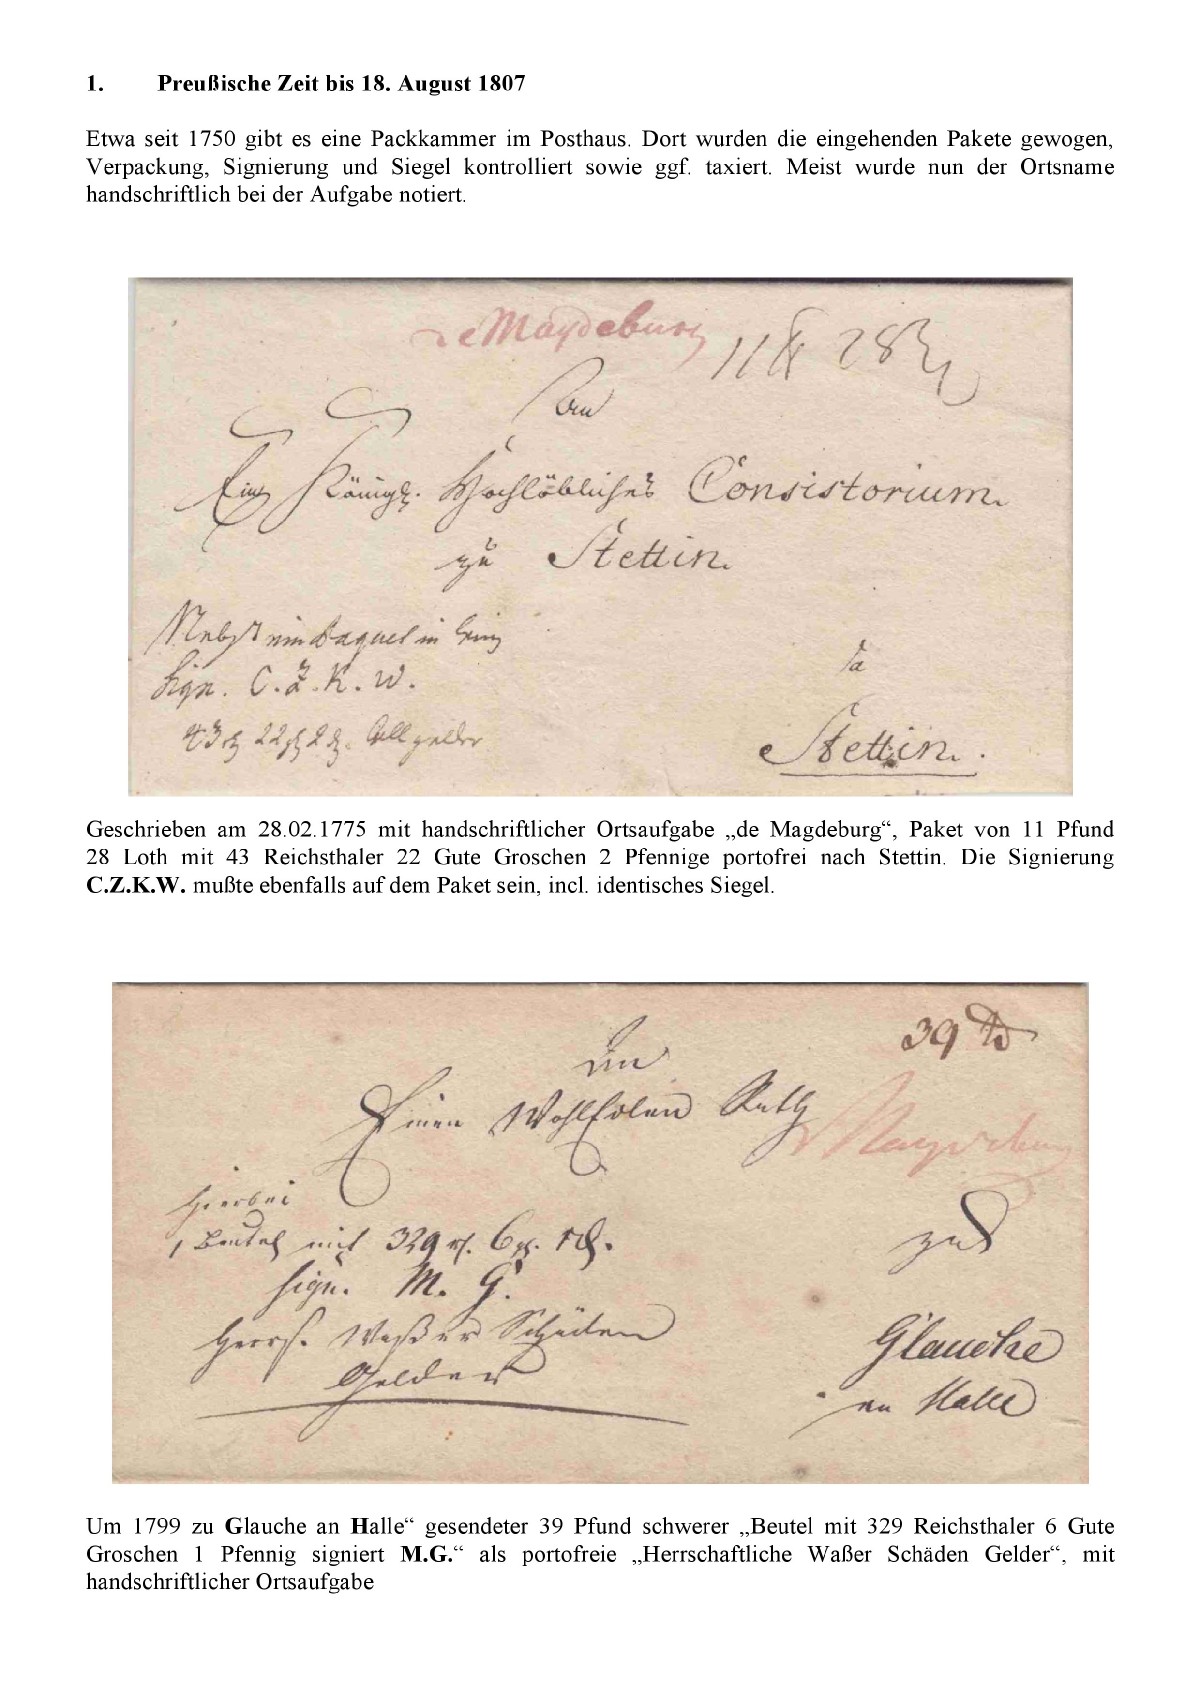 1. Preußische Zeit bis 18. August 1807
Etwa seit 1750 gibt es eine Packkammer im Posthaus. Dort wurden die eingehenden Pakete gewogen,
Verpackung, Signierung und Siegel kontrolliert sowie ggf. taxiert. Meist wurde nun der Ortsname
handschriftlich bei der Aufgabe notiert.
de Magdeburg
11 28
An
Ein Königl. Hochlöbliches Consistorium.
zu Stettin.
Nebst ein Paquet in
Sign. C.Z.K.W.
43 22 2 gelder
Stettin.
Geschrieben am 28.02.1775 mit handschriftlicher Ortsaufgabe „de Magdeburg“, Paket von 11 Pfund
28 Loth mit 43 Reichsthaler 22 Gute Groschen 2 Pfennige portofrei nach Stettin. Die Signierung
C.Z.K.W. mußte ebenfalls auf dem Paket sein, incl. identisches Siegel.
39
An
Einen WohlEdlen Rath
Magdeburg
Hierbei
1 Beutel mit 329 6 1
sign. M. G.
zu
Herrs. Waßer Schäden
Gelder
Glauche
an Halle
Um 1799 zu Glauche an Halle“ gesendeter 39 Pfund schwerer „Beutel mit 329 Reichsthaler 6 Gute
Groschen 1 Pfennig signiert M.G.“ als portofreie „Herrschaftliche Waßer Schäden Gelder“, mit
handschriftlicher Ortsaufgabe